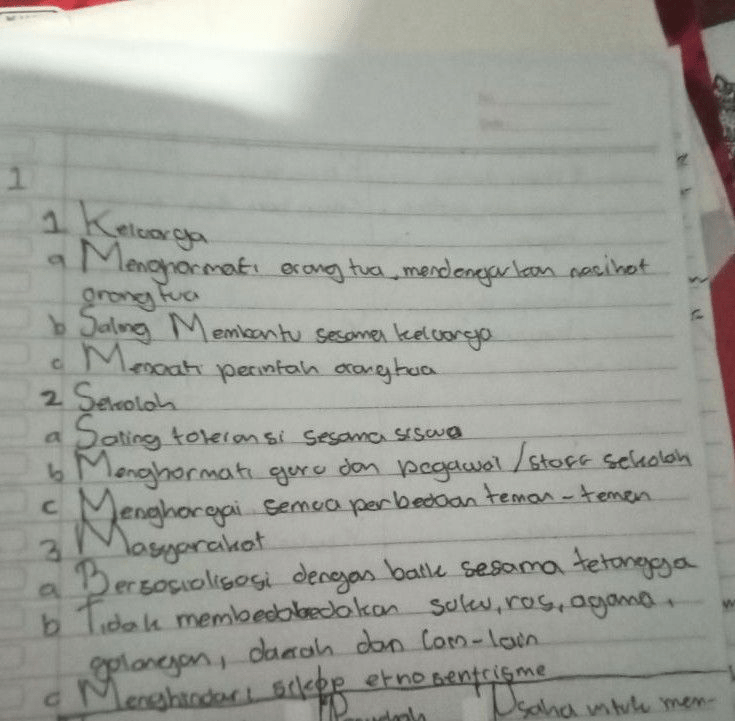 1
1 Keluarga
a Menghormati orang tua, mendengarkan nasihat
orang tua
b Saling Membantu sesama keluarga
c Menaati perintah orang tua
2 Sekolah
a Saling toleransi sesama siswa
b Menghormati guru dan pegawai / staff sekolah
c Menghargai semua perbedaan teman - temen
3 Masyarakat
a Bersosialisasi dengan baik sesama tetangga
b Tidak membedabedakan suku, ras, agama,
golongan, daerah dan lain-lain
c Menghindari sikap etnosentrisme
Usaha untuk men-